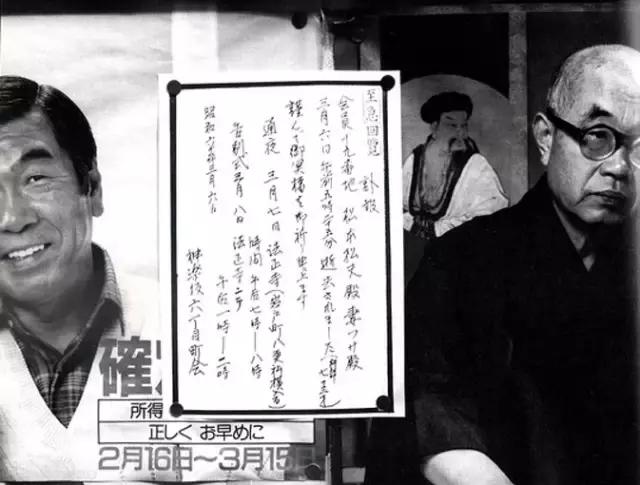 至急回覧
訃報
会員十九番地 松本松夫殿妻 殿
三月六日 午前五時 分 逝去されました
謹んで御冥福を御祈り申上ます
通夜 三月七日 法正寺(岩戸町八
時間 午后七時―八時
告別式 三月八日 法正寺ニテ
午后一時―二時
昭和六十年三月六日
神楽坂六丁目町会
確
所得
正しく お早めに
2月16日～3月15日